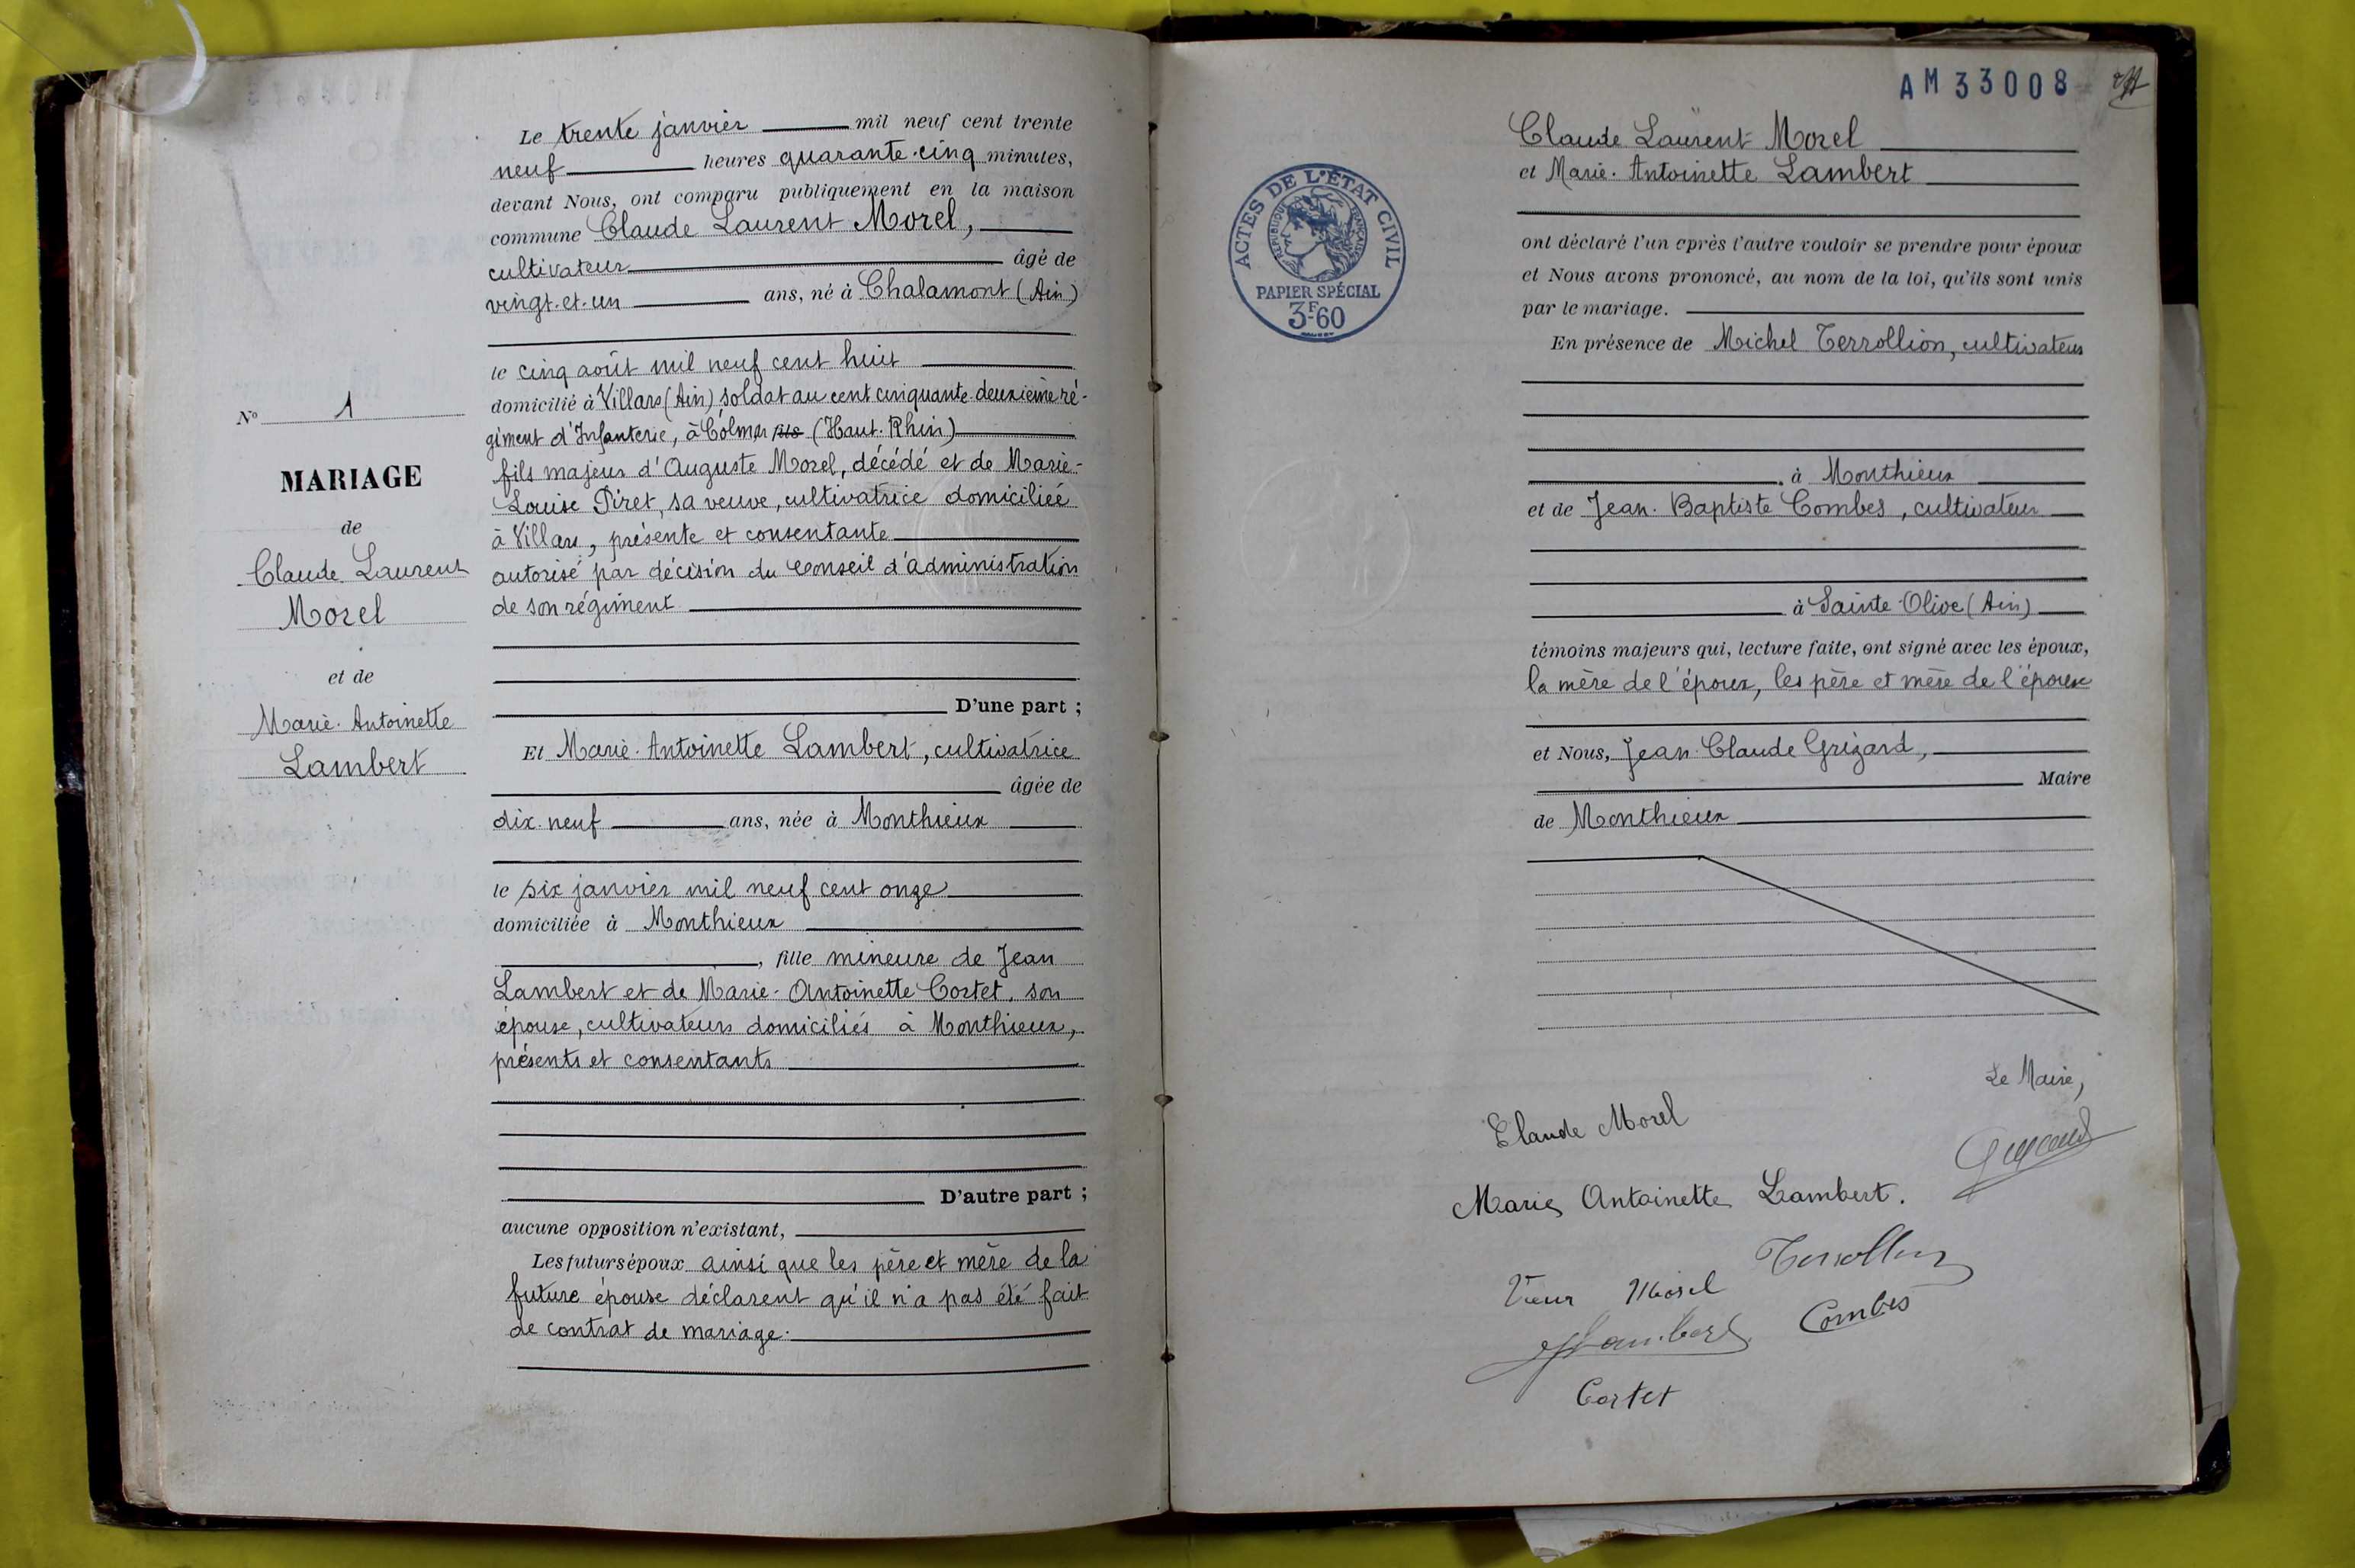 Le trente janvier mil neuf cent trente
neuf heures quarante-cinq minutes,
devant Nous, ont comparu publiquement en la maison
commune Claude Laurent Morel,
cultivateur âgé de
vingt-et-un ans, né à Chalamont (Ain)
le cinq août mil neuf cent huit
domicilié à Villars (Ain) soldat au cent cinquante-deuxième ré-
giment d'Infanterie, à Colmar fils (Haut-Rhin)
fils majeur d'Auguste Morel, décédé et de Marie-
Louise Piret, sa veuve, cultivatrice domiciliée
à Villars, présente et consentante
autorisé par décision du Conseil d'administration
de son régiment
D'une part ;
Et Marie-Antoinette Lambert, cultivatrice
âgée de
dix-neuf ans, née à Monthieux
le six janvier mil neuf cent onze
domiciliée à Monthieux
, fille mineure de Jean
Lambert et de Marie-Antoinette Cortet, son
épouse, cultivateurs domiciliés à Monthieux,
présents et consentants
D'autre part ;
aucune opposition n'existant,
Les futurs époux ainsi que les père et mère de la
future épouse déclarent qu'il n'a pas été fait
de contrat de mariage.
N° 1
MARIAGE
de
Claude Laurent
Morel
et de
Marie-Antoinette
Lambert
AM33008
Claude Laurent Morel
et Marie-Antoinette Lambert
ont déclaré l'un après l'autre vouloir se prendre pour époux
et Nous avons prononcé, au nom de la loi, qu'ils sont unis
par le mariage.
En présence de Michel Terrollion, cultivateur
à Monthieux
et de Jean-Baptiste Combes, cultivateur
à Sainte-Olive (Ain)
témoins majeurs qui, lecture faite, ont signé avec les époux,
la mère de l'époux, les père et mère de l'épouse
et Nous, Jean-Claude Grizard,
Maire
de Monthieux
ACTES DE L'ÉTAT CIVIL
RÉPUBLIQUE FRANÇAISE
PAPIER SPÉCIAL
3F60
Le Maire,
Claude Morel
Marie Antoinette Lambert.
Terrollion
Morel
Combes
Lambert
Cortet